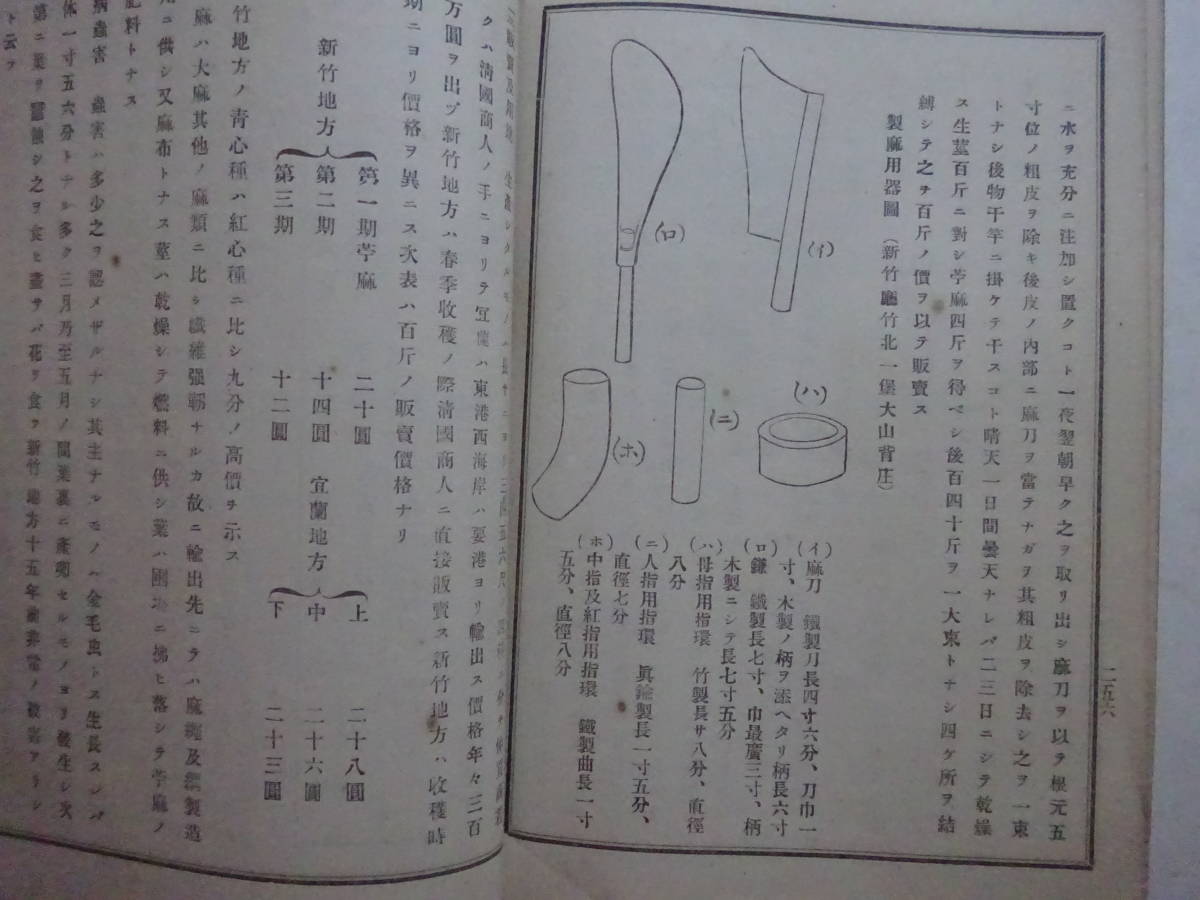 二五六
ニ水ヲ充分ニ注加シ置クコト一夜翌朝早ク之ヲ取リ出シ麻刀ヲ以テ根元五
寸位ノ粗皮ヲ除キ後皮ノ内部ニ麻刀ヲ當テナガヲ其粗皮ヲ除去シ之ヲ一束
トナシ後物干竿ニ掛ケテ干スコト晴天一日間曇天ナレバ二三日ニシテ乾燥
ス生莖百斤ニ對シ苧麻四斤ヲ得ベシ後百四十斤ヲ一大束トナシ四ケ所ヲ結
縛シテ之ヲ百斤ノ價ヲ以テ販賣ス
製麻用器圖(新竹廳竹北一堡大山背庄)
(イ)
(ロ)
(ハ)
(ニ)
(ホ)
(イ)麻刀 鐵製刀長四寸六分、刀巾一
寸、木製ノ柄ヲ添ヘタリ柄長六寸
(ロ)鎌 鐵製長七寸、巾最廣三寸、柄
木製ニシテ長七寸五分
(ハ)母指用指環 竹製長サ八分、直徑
八分
(ニ)人指用指環 眞鍮製長一寸五分、
直徑七分
(ホ)中指及紅指用指環 鐵製曲長一寸
五分、直徑八分
クハ淸國商人ノ手ニヨリテ宜蘭ハ東港西海岸ハ要港ヨリ輸出ス價格年々三百
万圓ヲ出ヅ新竹地方ハ春季收穫ノ際淸國商人ニ直接販賣ス新竹地方ハ收穫時
期ニヨリ價格ヲ異ニス次表ハ百斤ノ販賣價格ナリ
新竹地方
第一期苧麻 二十圓
第二期 十四圓
第三期 十二圓
宜蘭地方
上 二十八圓
中 二十六圓
下 二十三圓
竹地方ノ靑心種ハ紅心種ニ比シ九分ノ高價ヲ示ス
麻ハ大麻其他ノ麻類ニ比シ纖維强靱ナルカ故ニ輸出先ニテハ麻繩及網製造
用ニ供シ又麻布トナス莖ハ乾燥シテ燃料ニ供シ葉ハ圃地ニ拂ヒ落シテ苧麻ノ
肥料トナス
病蟲害 蟲害ハ多少之ヲ認メザルナシ其主ナルモノハ金毛虫トス生長スレバ
体一寸五六分トナル多ク三月乃至五月ノ間葉裏ニ產卵セルモノヨリ發生シ次
第ニ葉ヲ蠶蝕シ之ヲ食ヒ盡サバ花ヲ食フ新竹地方十五年前非常ノ被害アリシ
ト云フ